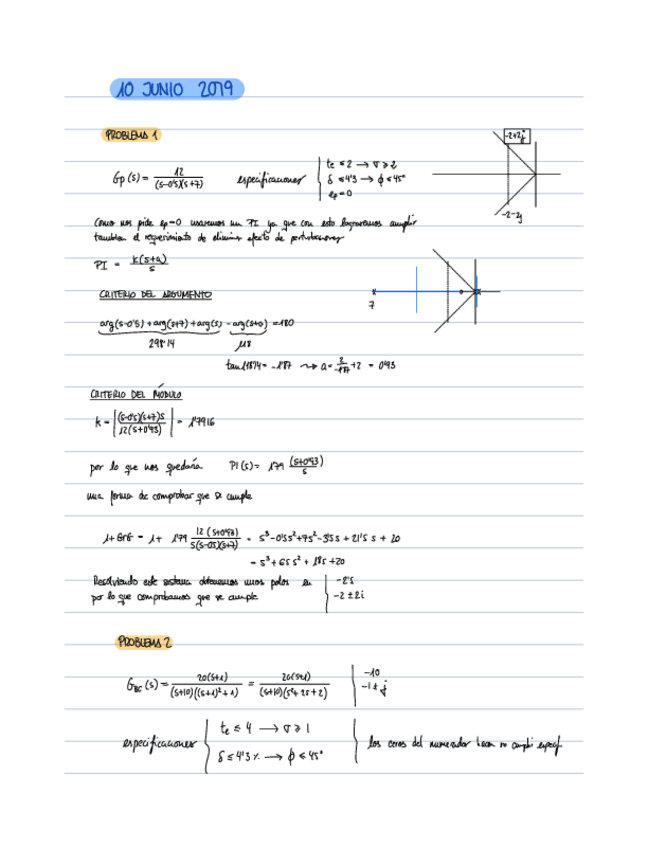 10 JUNIO 2019
PROBLEMA 1
-2+2j
Gp(s) = 12 / (s-0'5)(s+7) especificaciones te ≤ 2 → σ ≥ 2
δ ≤ 4'3 → ϕ ≤ 45°
ep = 0
-2-2j
Como nos pide ep=0 usaremos un PI ya que con esto lograremos cumplir
tambien el requerimiento de eliminar efecto de perturbaciones
PI = k(s+a) / s
CRITERIO DEL ARGUMENTO
7
arg(s-0'5) + arg(s+7) + arg(s) - arg(s+a) = 180
298'14
tan = -1'87 → a = 2 / -1'87 + 2 = 0'93
CRITERIO DEL MÓDULO
k = |(s-0'5)(s+7)s / 12(s+0'93)| = 1'7916
por lo que nos quedaría PI(s) = 1'79 (s+0'93) / s
una forma de comprobar que se cumple
1+GrG = 1+ 1'79 12(s+0'93) / s(s-0'5)(s+7) = s³-0'5s²+7s²-3'5s + 21'5 s + 20
= s³ + 6'5 s² + 18s + 20
Resolviendo este sistema obtenemos unos polos en -2'5
por lo que comprobamos que se cumple -2 ± 2i
PROBLEMA 2
G_BC(s) = 20(s+1) / (s+10)((s+1)²+1) = 20(s+1) / (s+10)(s²+2s+2) -10
-1 ± j
especificaciones te ≤ 4 → σ ≥ 1
δ ≤ 4'3 % → ϕ ≤ 45°
los ceros del numerador hacen no cumplir especif.